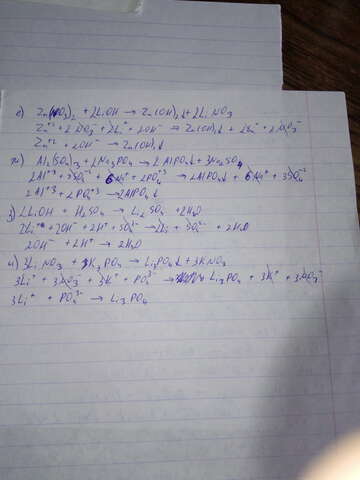 е) Zn(NO3)2 + 2LiOH → Zn(OH)2↓ + 2LiNO3
Zn+2 + 2NO3- + 2Li+ + 2OH- → Zn(OH)2↓ + 2Li+ + 2NO3-
Zn+2 + 2OH- → Zn(OH)2↓
ж) Al2(SO4)3 + 2Na3PO4 → 2AlPO4↓ + 3Na2SO4
2Al+3 + 3SO4-2 + 6Na+ + 2PO4-3 → 2AlPO4↓ + 6Na+ + 3SO4-2
2Al+3 + 2PO4+3 → 2AlPO4↓
з) 2LiOH + H2SO4 → Li2SO4 + 2H2O
2Li+ + 2OH- + 2H+ + SO4-2 → 2Li + SO4-2 + 2H2O
2OH- + 2H+ → 2H2O
и) 3LiNO3 + K3PO4 → Li3PO4↓ + 3KNO3
3Li+ + 3NO3- + 3K+ + PO4 3- → Li3PO4 + 3K+ + 3NO3-
3Li+ + PO4 3- → Li3PO4